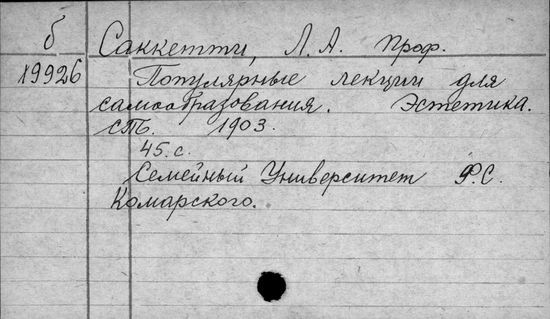 б
19926
Саккетти, Л. А. проф.
Популярные лекции для
самообразования. Эстетика.
СПб. 1903.
45 с.
Семейный Университет Ф. С.
Комарского.